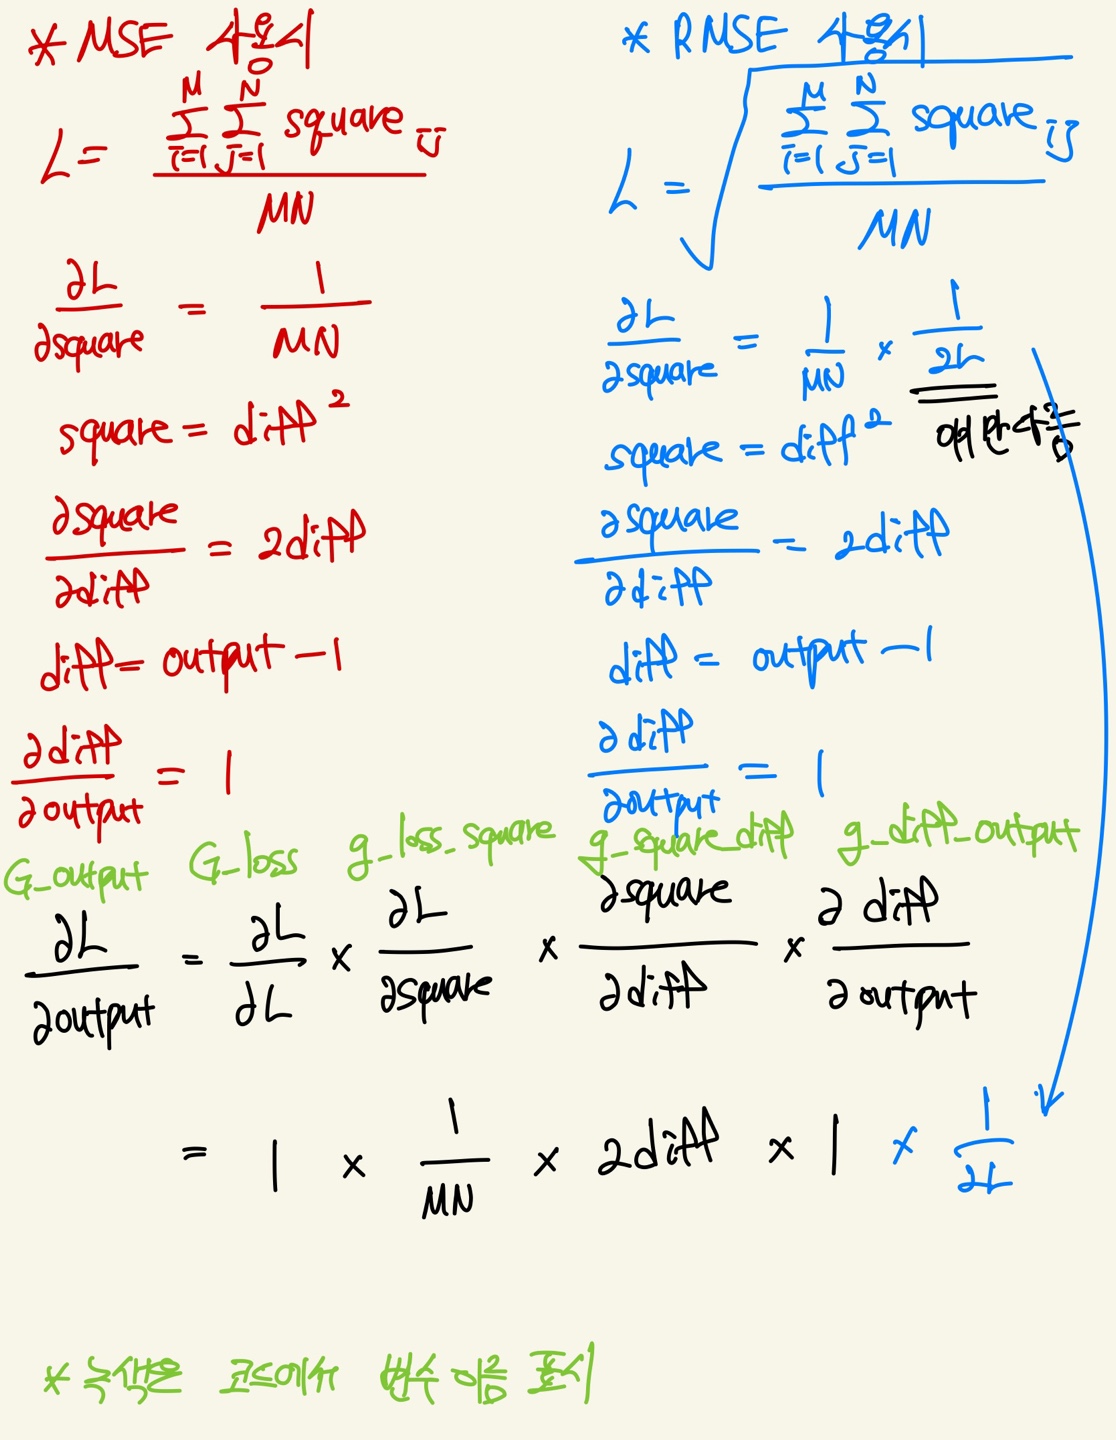 * MSE 사용시
L = \frac{\sum_{i=1}^{M} \sum_{j=1}^{N} square_{ij}}{MN}
\frac{∂L}{∂square} = \frac{1}{MN}
square = diff^2
\frac{∂square}{∂diff} = 2diff
diff = output - 1
\frac{∂diff}{∂output} = 1
* RMSE 사용시
L = \sqrt{\frac{\sum_{i=1}^{M} \sum_{j=1}^{N} square_{ij}}{MN}}
\frac{∂L}{∂square} = \frac{1}{MN} × \frac{1}{2L}
square = diff^2
\frac{∂square}{∂diff} = 2diff
diff = output - 1
\frac{∂diff}{∂output} = 1
G_output G_loss g_loss_square g_square_diff g_diff_output
\frac{∂L}{∂output} = \frac{∂L}{∂L} × \frac{∂L}{∂square} × \frac{∂square}{∂diff} × \frac{∂diff}{∂output}
= 1 × \frac{1}{MN} × 2diff × 1 × \frac{1}{2L}
* 녹색은 코드에서 변수 이름 표시